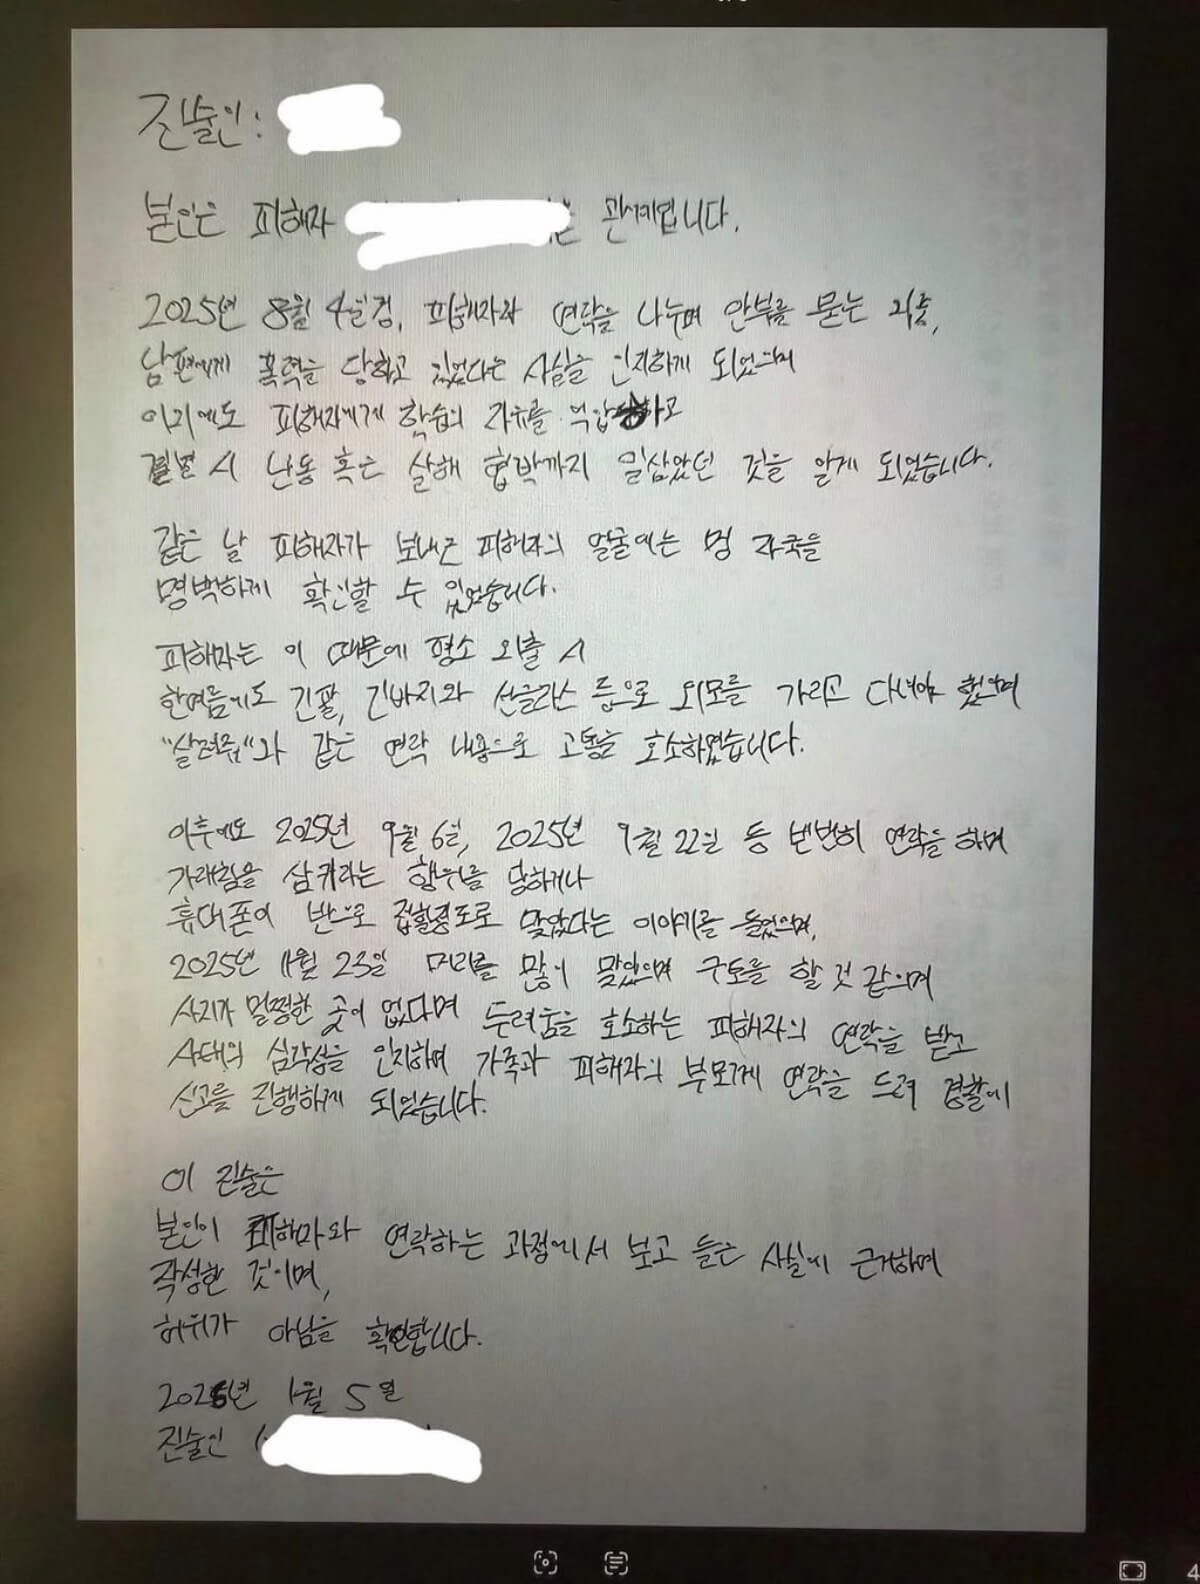 진술인:
본인은 피해자 는 관계입니다.
2025년 8월 4일경, 피해자와 연락을 나누며 안부를 묻는 과정,
남편에게 폭력을 당하고 있었다는 사실을 인지하게 되었으며
이외에도 피해자에게 학습의 자유를 억압하고
결별 시 난동 혹은 살해 협박까지 일삼았던 것을 알게 되었습니다.
같은 날 피해자가 보내온 피해자의 얼굴에는 멍 자국을
명백하게 확인할 수 있었습니다.
피해자는 이 때문에 평소 외출 시
한여름에도 긴팔, 긴바지와 선글라스 등으로 외모를 가리고 다녀야 했으며
"살려줘"와 같은 연락 내용으로 고통을 호소하였습니다.
이후에도 2025년 9월 6일, 2025년 9월 22일 등 빈번히 연락을 하며
가래침을 삼키라는 행위를 당하거나
휴대폰이 반으로 접힐정도로 맞았다는 이야기를 들었으며,
2025년 11월 23일 머리를 많이 맞았으며 구토를 할 것 같으며
사지가 멀쩡한 곳이 없다며 두려움을 호소하는 피해자의 연락을 받고
사태의 심각성을 인지하여 가족과 피해자의 부모에게 연락을 드려 경찰에
신고를 진행하게 되었습니다.
이 진술은
본인이 피해자와 연락하는 과정에서 보고 들은 사실에 근거하여
작성한 것이며,
허위가 아님을 확인합니다.
2026년 1월 5일
진술인
4